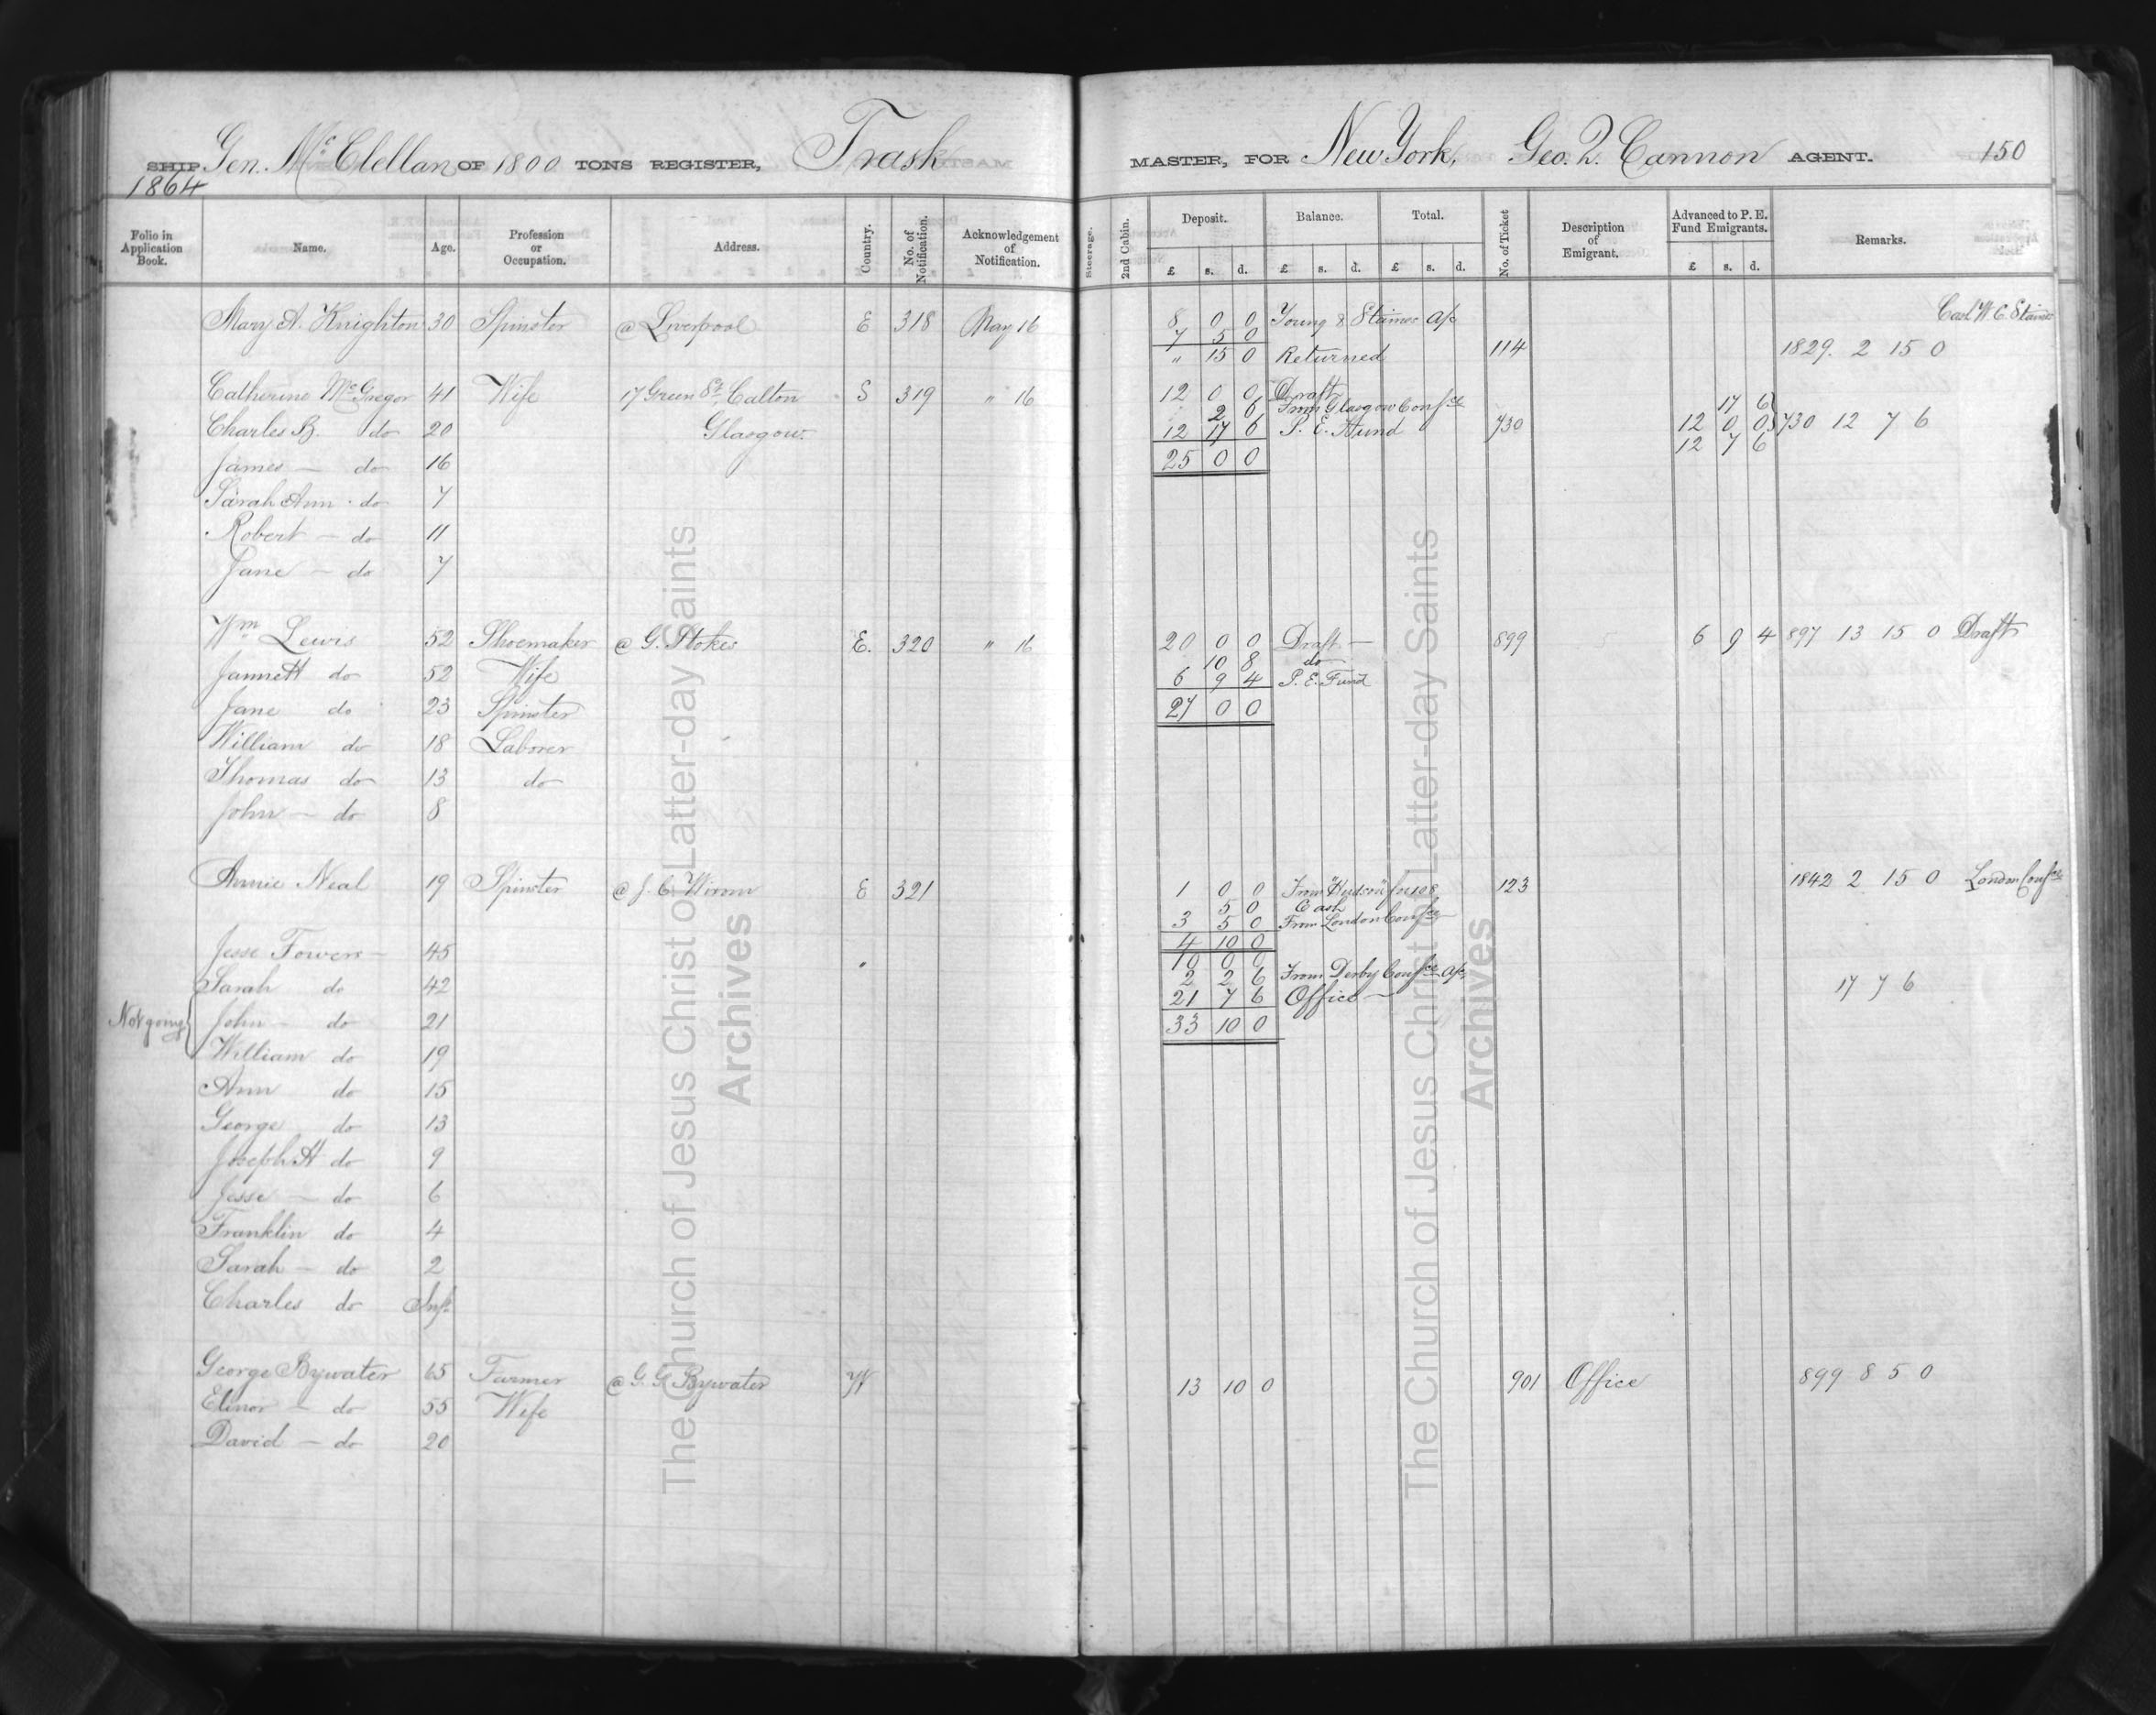 SHIP Gen. McClellan OF 1800 TONS REGISTER, Trask MASTER, FOR New York, Geo. Q. Cannon AGENT. 150
1864
Folio in Application Book. Name. Age. Profession or Occupation. Address. Country. No. of Notification. Acknowledgement of Notification. Steerage. 2nd Cabin. Deposit. Balance. Total. No. of Ticket Description of Emigrant. Advanced to P. E. Fund Emigrants. Remarks.
£ s. d. £ s. d. £ s. d. £ s. d.
Mary A. Knighton 30 Spinster @ Liverpool E 318 May 16 8 0 0 Young & Staines a/c Cash W. C. Staines
7 5 0
" 15 0 Returned 114 1829. 2 15 0
Catherine McGregor 41 Wife 17 Green St. Calton S 319 " 16 12 0 0 Draft
2 6 From Glasgow Confce 17 6
Charles B. do 20 Glasgow. 12 17 6 P. E. Fund 730 12 0 0 730 12 7 6
12 7 6
James — do 16 25 0 0
Sarah Ann do 7
Robert — do 11
Jane — do 7
Wm Lewis 52 Shoemaker @ G. Stokes E. 320 " 16 20 0 0 Draft — 899 6 9 4 897 13 15 0 Draft
10 8 do
Jannett do 52 Wife 6 9 4 P. E. Fund
Jane do 23 Spinster 27 0 0
William do 18 Laborer
Thomas do 13 do
John — do 8
Annie Neal 19 Spinster @ J. C. Wixom E 321 1 0 0 From "Hudson" for 108 123 1842 2 15 0 London Confce
5 0 Cash
3 5 0 From London Confce
4 10 0
Jesse Fowers — 45 10 0 0
Sarah do 42 2 2 6 From Derby Confce a/c 17 7 6
21 7 6 Office —
Not going John — do 21 33 10 0
William do 19
Ann do 15
George do 13
Joseph H do 9
Jesse — do 6
Franklin do 4
Sarah — do 2
Charles do Inft
George Bywater 65 Farmer @ G. G. Bywater W 13 10 0 901 Office 899 8 5 0
Elinor — do 55 Wife
David — do 20
The Church of Jesus Christ of Latter-day Saints
Archives
The Church of Jesus Christ of Latter-day Saints
Archives